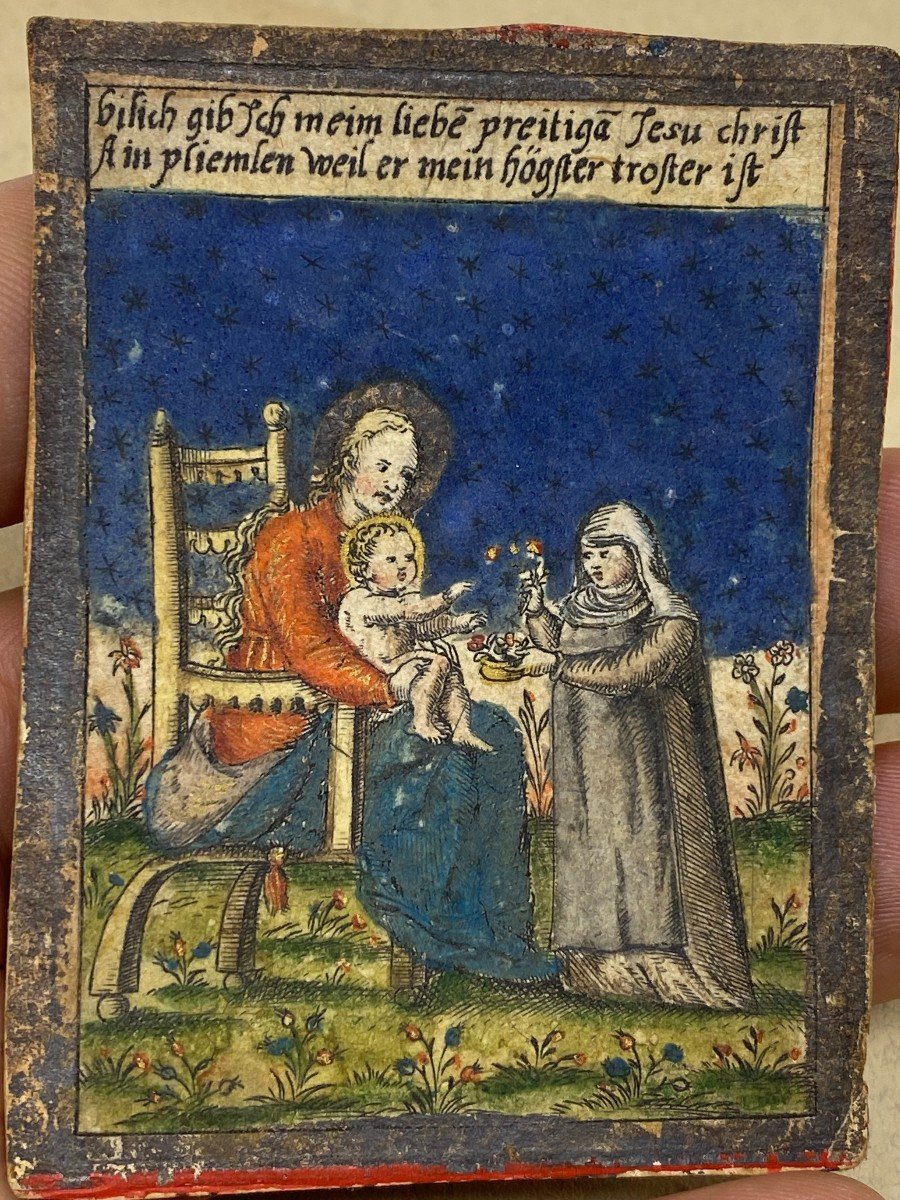 bilich gib Jch meim liebē preitigā Jesu christ
A in pliemlen weil er mein högster troster ist